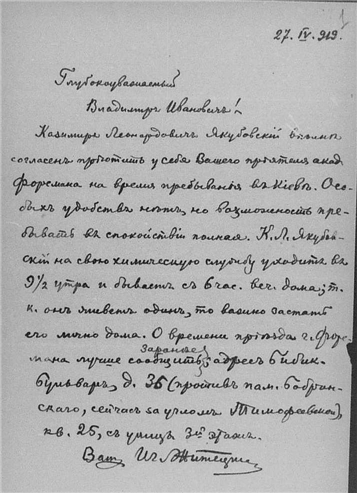 27. IV. 919.
Глубокоуважаемый
Владимиръ Ивановичъ!
Казимиръ Леонардовичъ Якубовскій вполне
согласенъ прiютить у себя Вашего прiятеля акад.
Форемана на время пребыванiя въ Кiевѣ. Осо-
быхъ удобствъ нѣтъ, но возможность пре-
бывать въ спокойствiи полная. К. Л. Якубов-
скiй на свою химическую службу уходитъ въ
9 1/2 утра и бываетъ съ 6 час. веч. дома; т.
к. онъ живетъ одинъ, то важно застать
его лично дома. О времени прiѣзда г. Форе-
мана лучше сообщить заранѣе; адресъ Бибик.
бульваръ, д. 35 (противъ пам. Бобрин-
скаго, сейчасъ за угломъ Тимофеевской),
кв. 25, съ улицы 3й этажъ.
Ваш И. Житецкiй